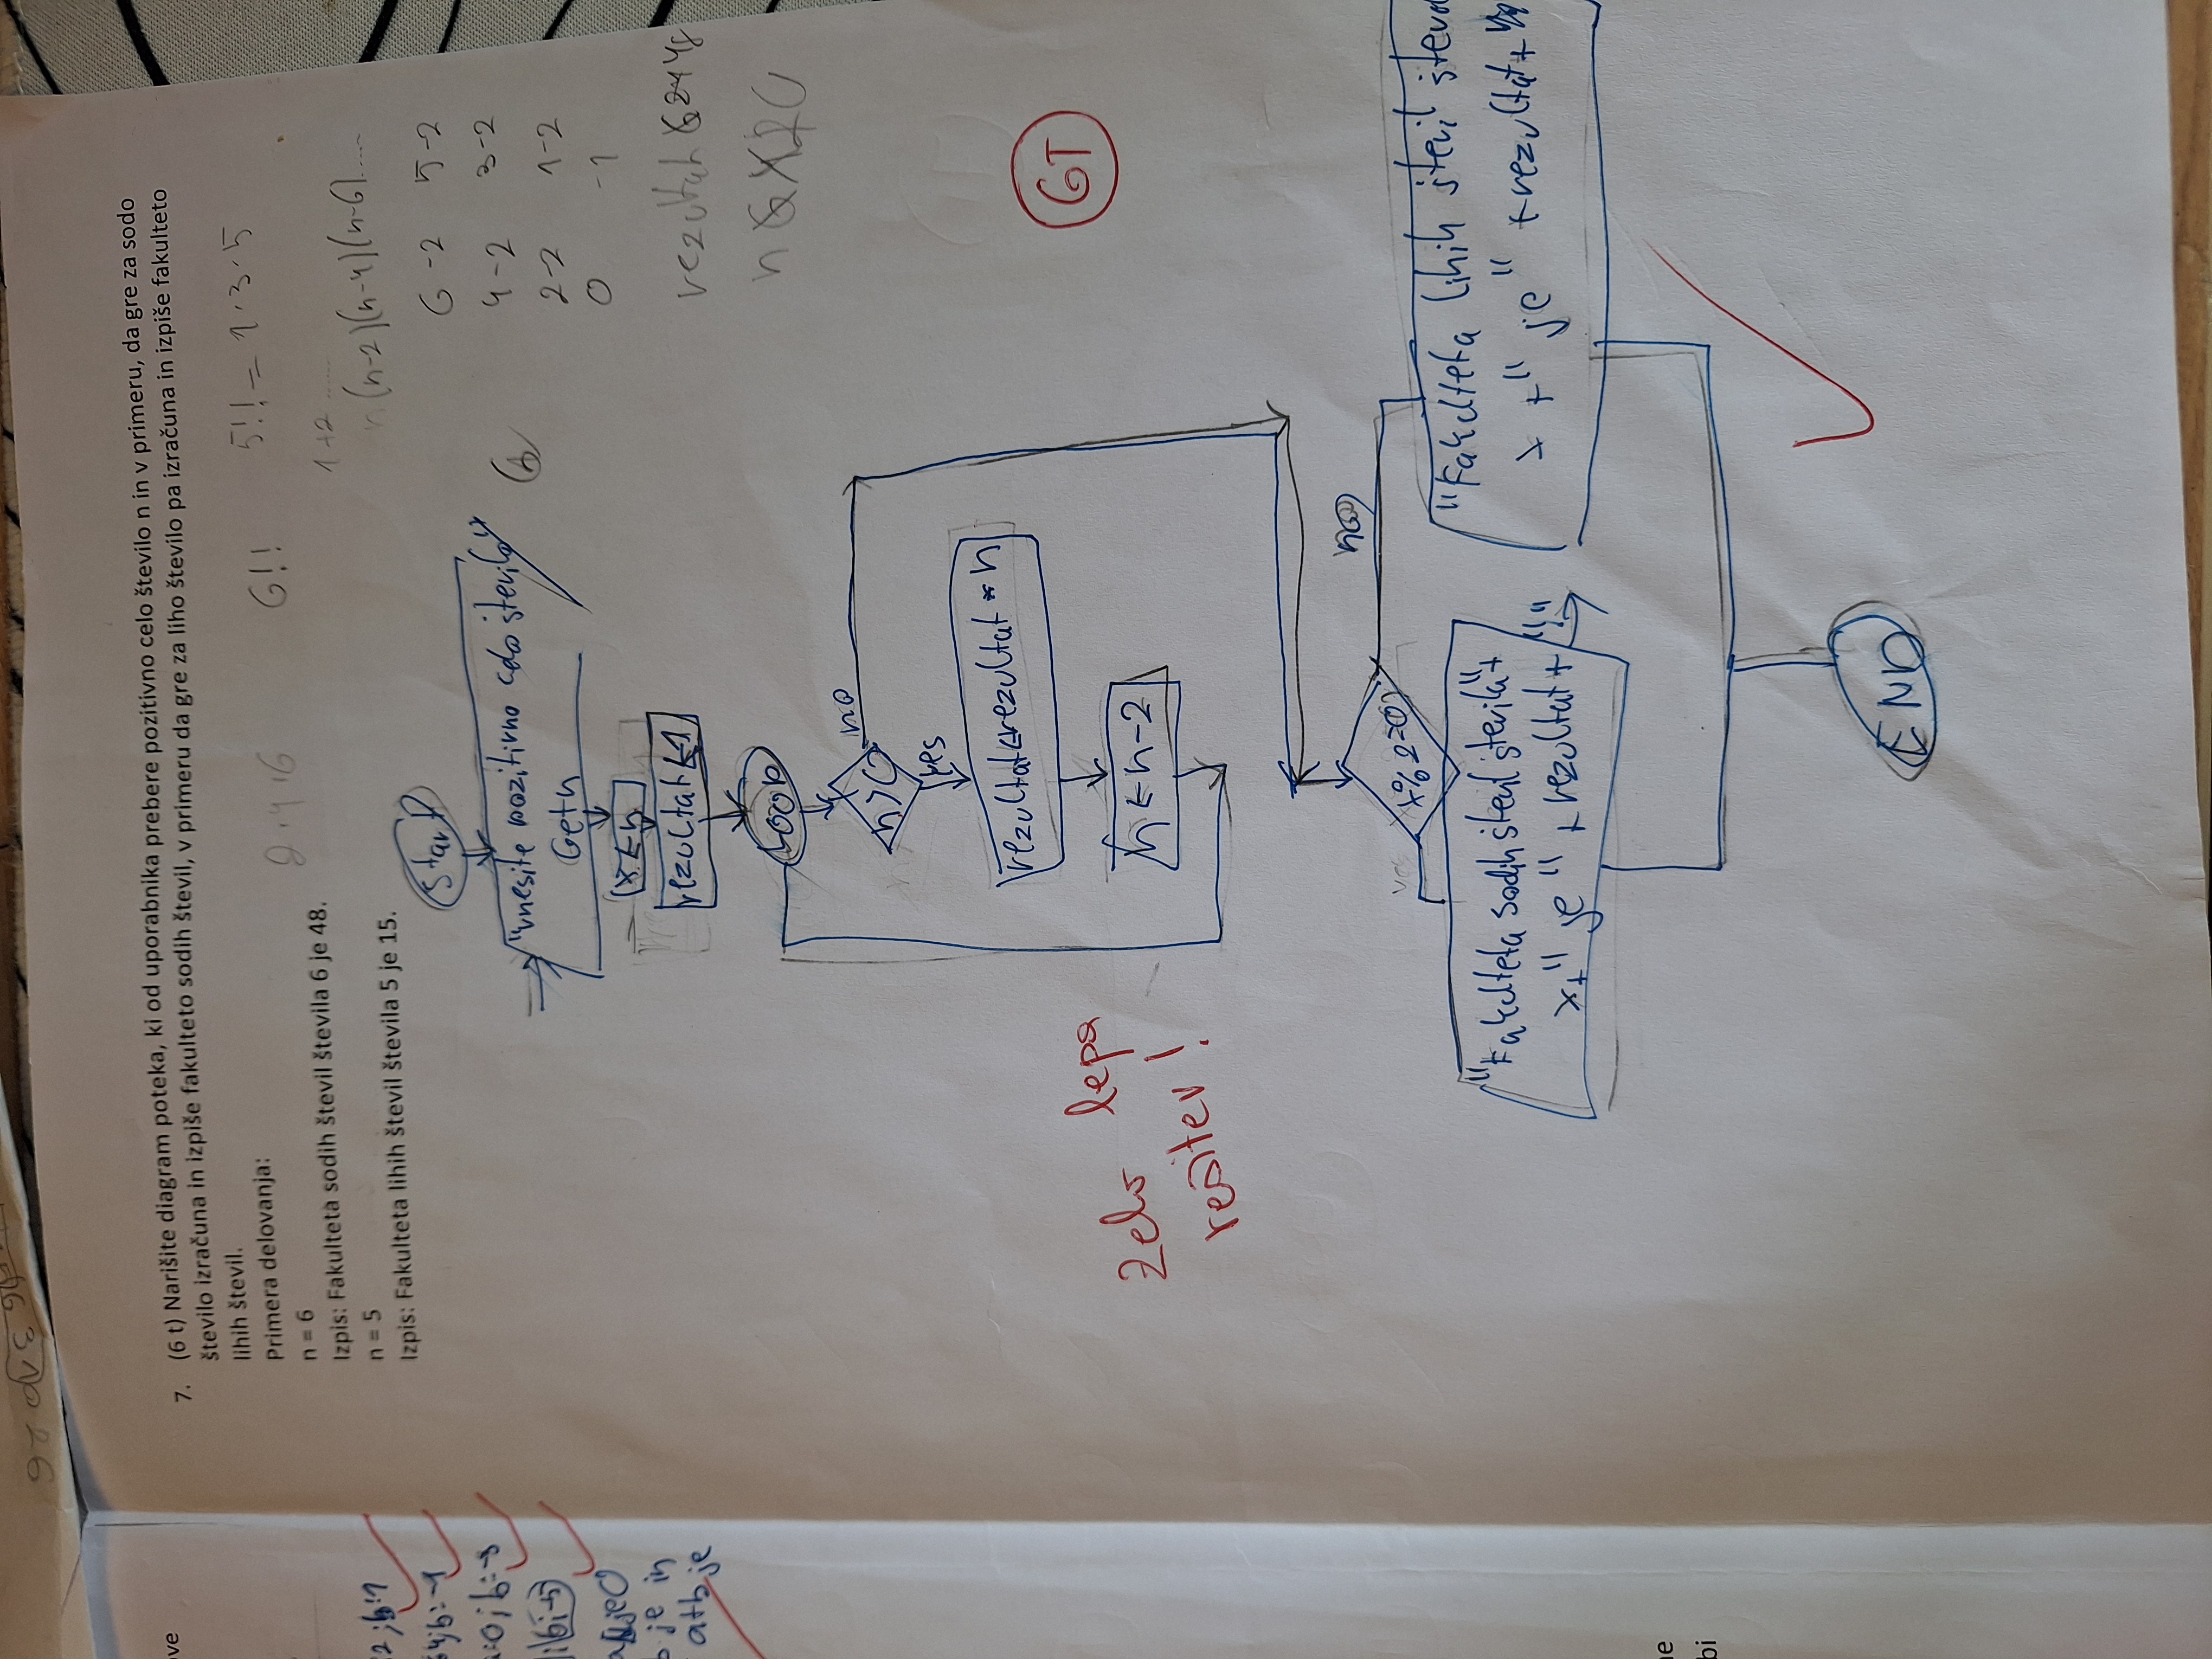 ove
2 ; b:1
4; b: -1
a:0; b: -3
je 0
b je in
a+b je
ne
bi
7. (6 t) Narišite diagram poteka, ki od uporabnika prebere pozitivno celo število n in v primeru, da gre za sodo
število izračuna in izpiše fakulteto sodih števil, v primeru da gre za liho število pa izračuna in izpiše fakulteto
lihih števil.
Primera delovanja:
n = 6
Izpis: Fakulteta sodih števil števila 6 je 48.
n = 5
Izpis: Fakulteta lihih števil števila 5 je 15.
2·4·6
6!!
5!! = 1·3·5
1+2 ......
n(n-2)(n-4)(n-6).....
6-2 5-2
4-2 3-2
2-2 1-2
0 -1
rezultat 6 24 48
n 6 4 2 0
Start
"vnesite pozitivno celo število"
Get n
x ← n
rezultat ← 1
Loop
n>0
no
yes
rezultat ← rezultat * n
n ← n-2
Zelo lepa
rešitev!
6T
x%2=0
yes
no
"Fakulteta sodih števil števila"+
x+" je "+rezultat+"."
"Fakulteta lihih števil
x +" je " +rezultat+
END